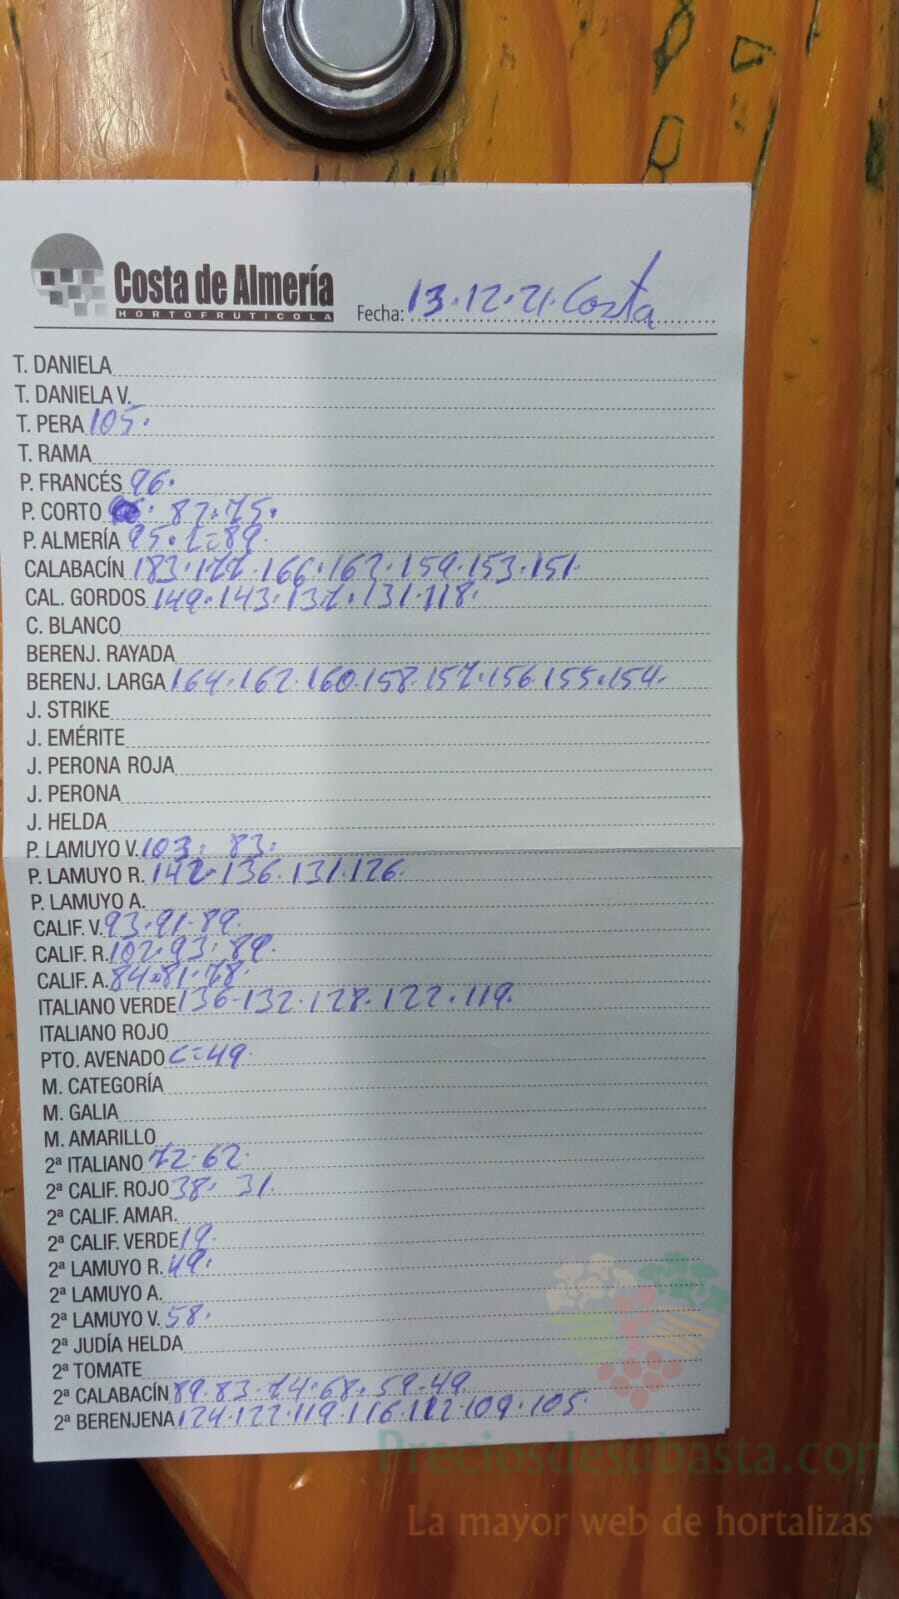 Costa de Almería
HORTOFRUTICOLA
Fecha: 13.12.21 Costa
T. DANIELA
T. DANIELA V.
T. PERA 105.
T. RAMA
P. FRANCÉS 96.
P. CORTO 87.75.
P. ALMERÍA 95. L=89.
CALABACÍN 183.177.166.162.159.153.151.
CAL. GORDOS 149.143.137.131.118.
C. BLANCO
BERENJ. RAYADA
BERENJ. LARGA 164.162.160.158.157.156.155.154.
J. STRIKE
J. EMÉRITE
J. PERONA ROJA
J. PERONA
J. HELDA
P. LAMUYO V. 103. 83.
P. LAMUYO R. 142.136.131.126.
P. LAMUYO A.
CALIF. V. 93.91.89.
CALIF. R. 102.93.89.
CALIF. A. 84.81.78.
ITALIANO VERDE 136-132.128.122.119.
ITALIANO ROJO
PTO. AVENADO C=49.
M. CATEGORÍA
M. GALIA
M. AMARILLO
2ª ITALIANO 72.62.
2ª CALIF. ROJO 38. 31.
2ª CALIF. AMAR.
2ª CALIF. VERDE 19.
2ª LAMUYO R. 49.
2ª LAMUYO A.
2ª LAMUYO V. 58.
2ª JUDÍA HELDA
2ª TOMATE
2ª CALABACÍN 89.83.74.68.59.49.
2ª BERENJENA 124.122.119.116.112.109.105.
Preciosdesubasta.com
La mayor web de hortalizas